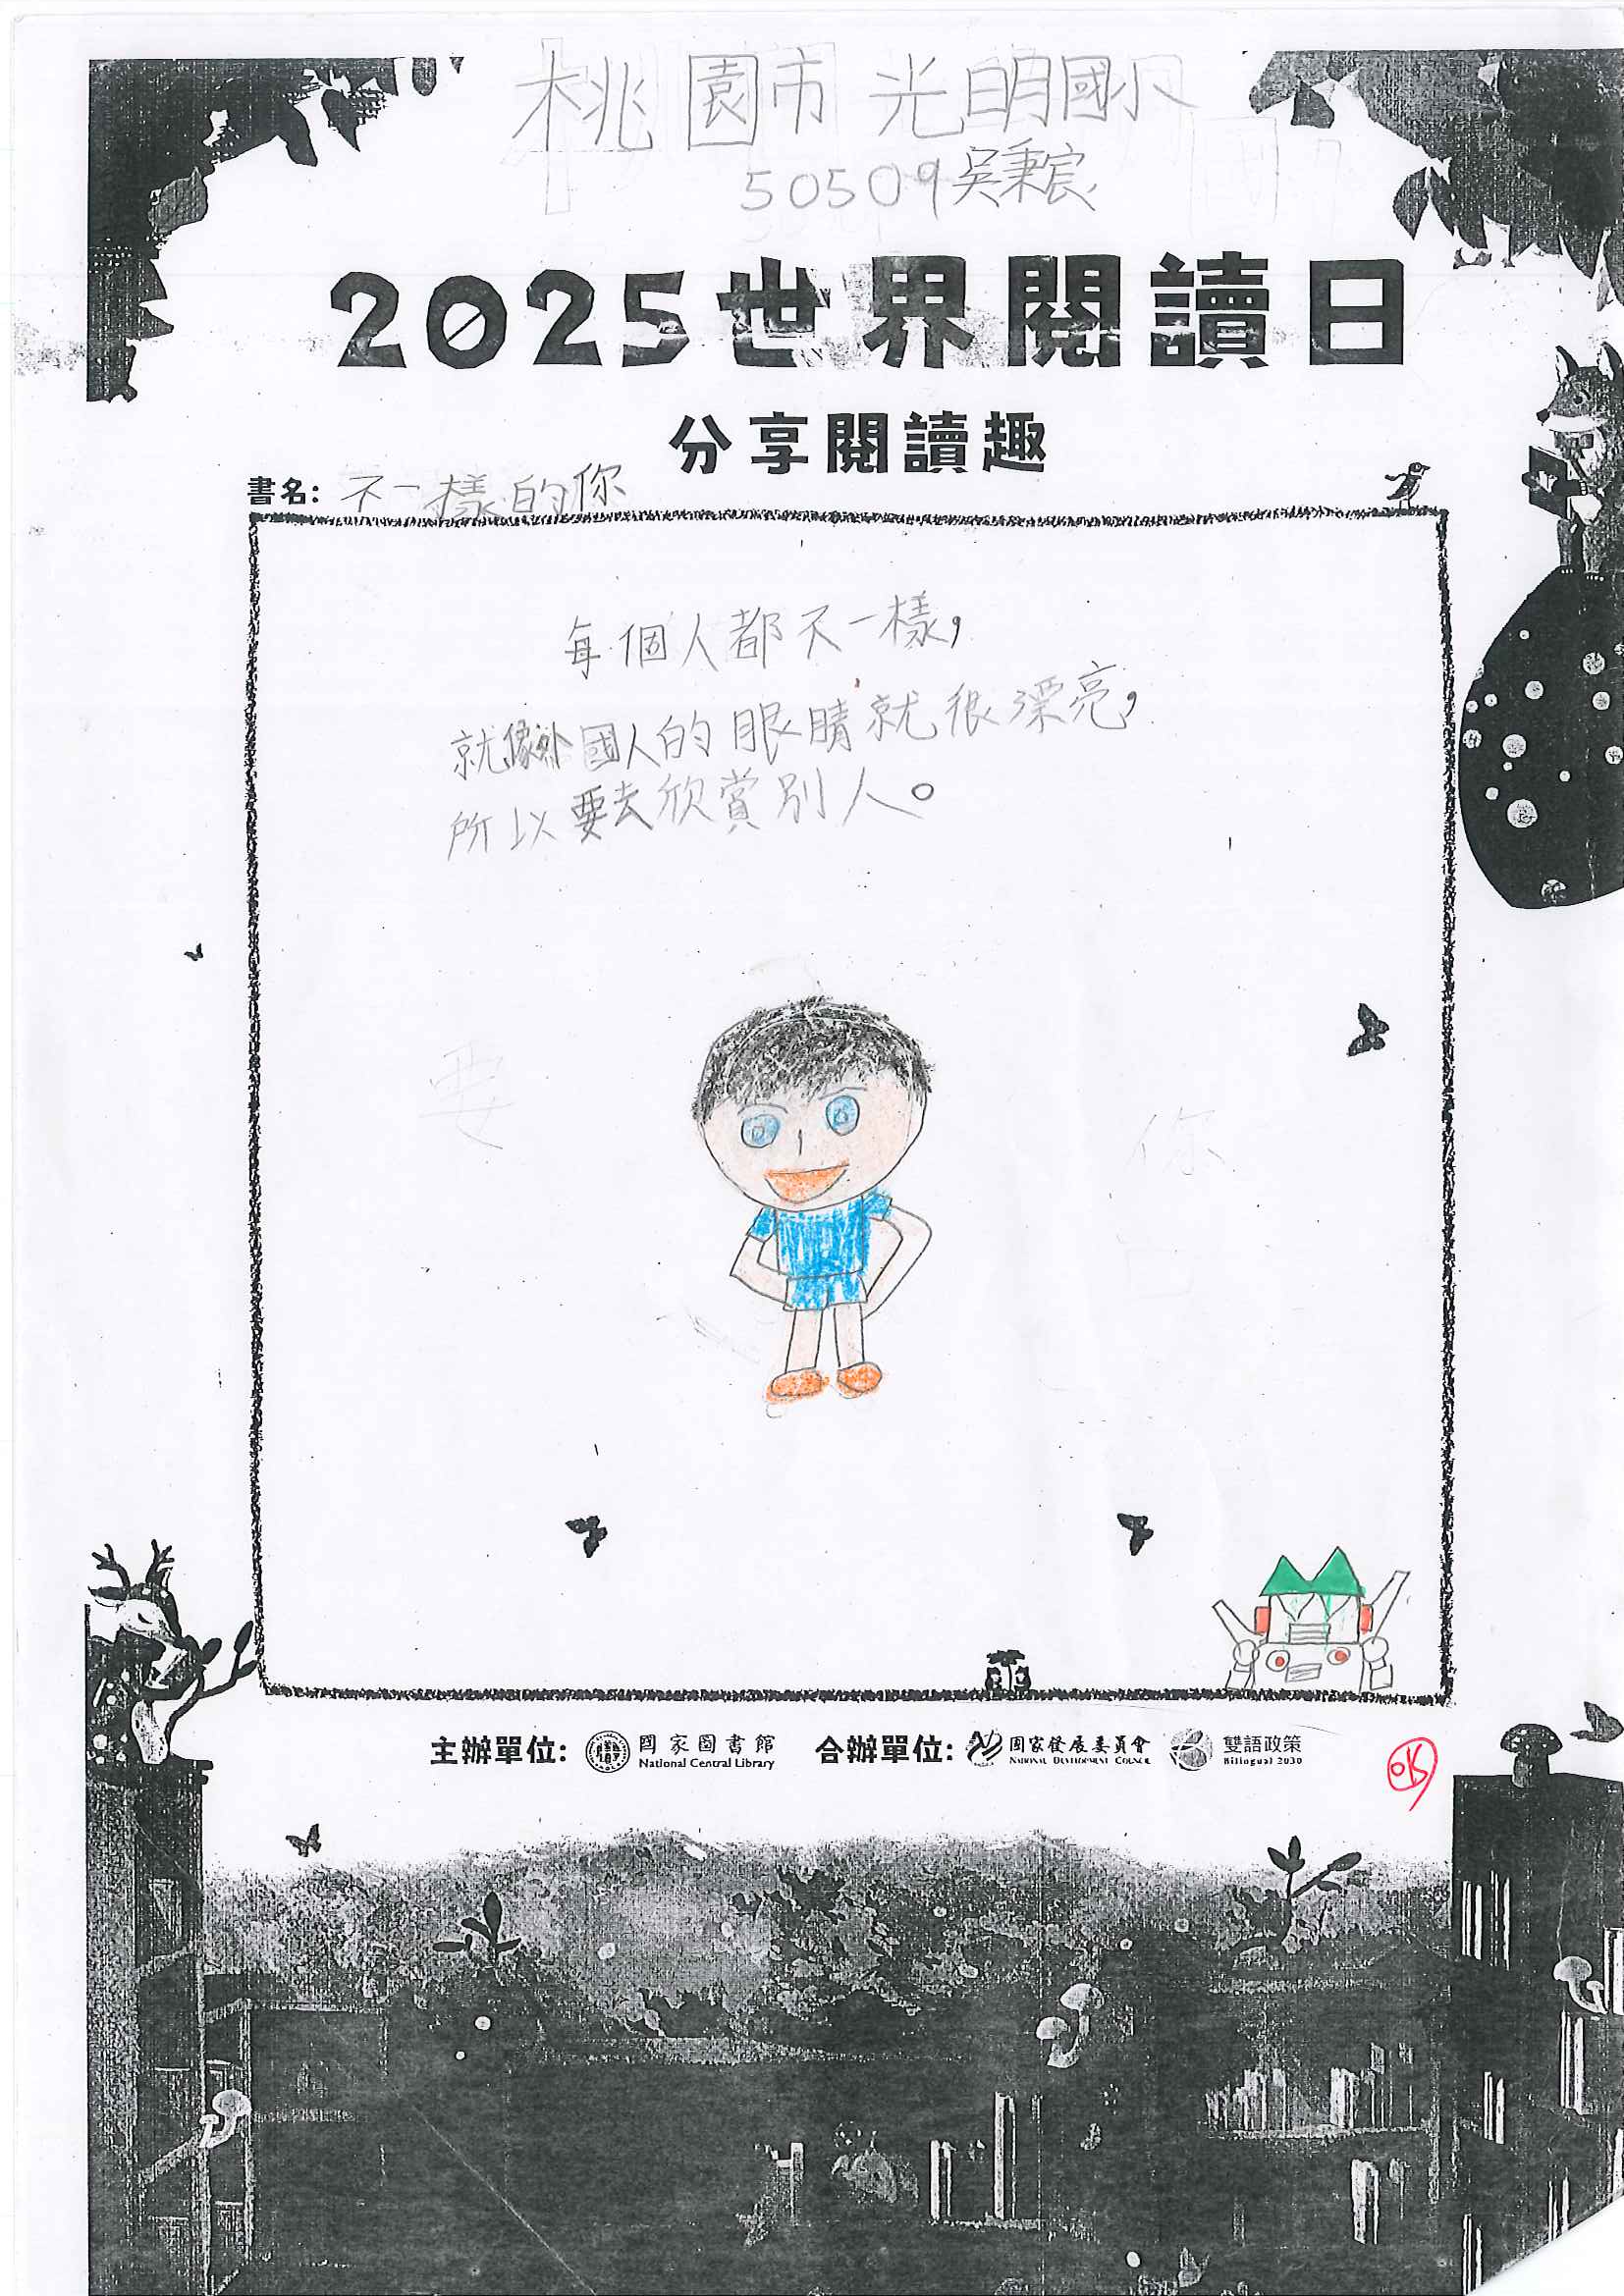 桃園市 光明國小
50509吳秉宸
2025世界閱讀日
分享閱讀趣
書名: 不一樣的你
每個人都不一樣,
就像外國人的眼睛就很漂亮,
所以要去欣賞別人。
要
你
主辦單位: 國家圖書館 National Central Library 合辦單位: 國家發展委員會 National Development Council 雙語政策 Bilingual 2030
OK